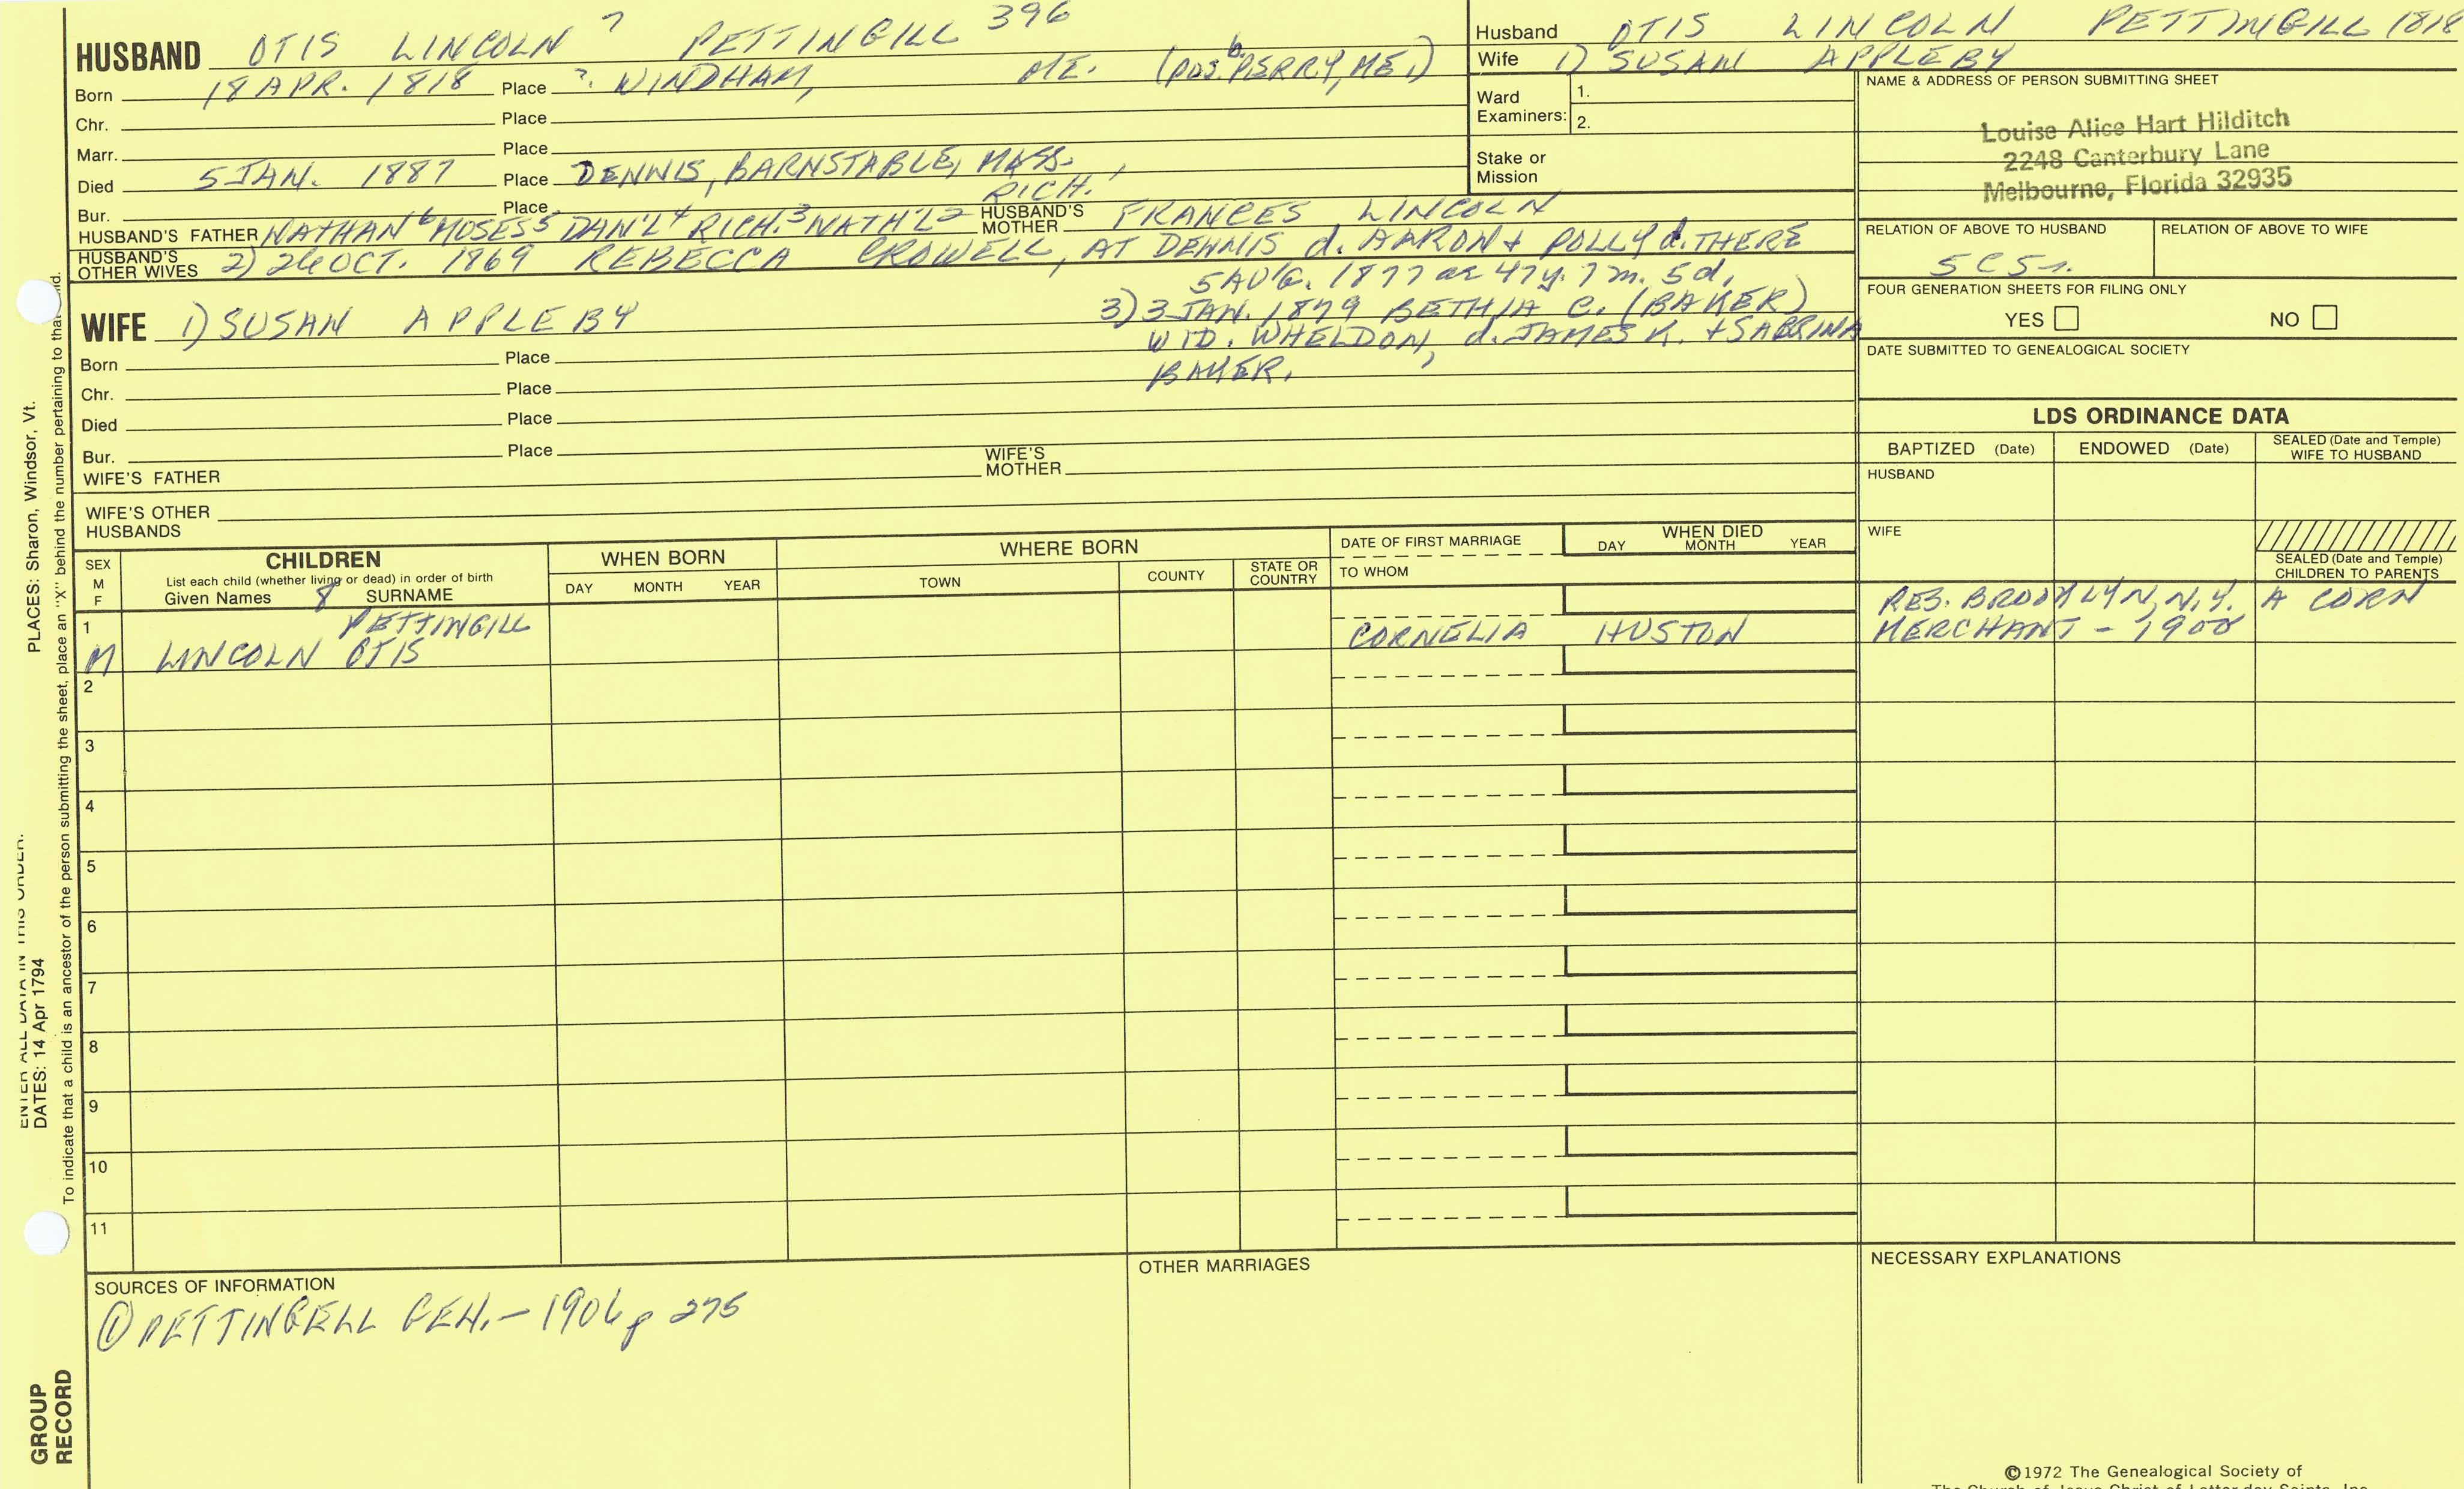 HUSBAND OTIS LINCOLN 7 PETTINGILL 396
Born 18 APR. 1818 Place ? WINDHAM, ME. (pos. b. PERRY, ME.)
Chr. Place
Marr. Place
Died 5 JAN. 1887 Place DENNIS, BARNSTABLE, MASS.
Bur. Place
HUSBAND'S FATHER NATHAN 6 MOSES 5 DAN'L 4 RICH. 3 NATH'L 2 RICH. 1 HUSBAND'S MOTHER FRANCES LINCOLN
HUSBAND'S OTHER WIVES 2) 26 OCT. 1869 REBECCA CROWELL, AT DENNIS d. AARON + POLLY d. THERE
5 AUG. 1877 ae 47 y. 7 m. 5 d.
3) 3 JAN. 1879 BETHIA C. (BAKER)
WID. WHELDON, d. JAMES K. + SABRINA
BAKER.
WIFE 1) SUSAN APPLEBY
Born Place
Chr. Place
Died Place
Bur. Place
WIFE'S FATHER WIFE'S MOTHER
WIFE'S OTHER HUSBANDS
Husband OTIS LINCOLN PETTINGILL 1818
Wife 1) SUSAN APPLEBY
Ward Examiners: 1.
2.
Stake or Mission
NAME & ADDRESS OF PERSON SUBMITTING SHEET
Louise Alice Hart Hilditch
2248 Canterbury Lane
Melbourne, Florida 32935
RELATION OF ABOVE TO HUSBAND RELATION OF ABOVE TO WIFE
FOUR GENERATION SHEETS FOR FILING ONLY
YES NO
DATE SUBMITTED TO GENEALOGICAL SOCIETY
LDS ORDINANCE DATA
BAPTIZED (Date) ENDOWED (Date) SEALED (Date and Temple) WIFE TO HUSBAND
HUSBAND
WIFE
SEALED (Date and Temple) CHILDREN TO PARENTS
SEX M F
CHILDREN
List each child (whether living or dead) in order of birth
Given Names 8 SURNAME
WHEN BORN
DAY MONTH YEAR
WHERE BORN
TOWN COUNTY STATE OR COUNTRY
DATE OF FIRST MARRIAGE
TO WHOM
WHEN DIED
DAY MONTH YEAR
1 M LINCOLN OTIS PETTINGILL CORNELIA HUSTON
RES. BROOKLYN, N.Y. A CORN
MERCHANT - 1900
2
3
4
5
6
7
8
9
10
11
SOURCES OF INFORMATION
① PETTINGELL GEN. - 1906 p 275
OTHER MARRIAGES
NECESSARY EXPLANATIONS
©1972 The Genealogical Society of
The Church of Jesus Christ of Latter-day Saints, Inc.
PLACES: Sharon, Windsor, Vt.
To indicate that a child is an ancestor of the person submitting the sheet, place an "X" behind the number pertaining to that
ENTER ALL DATA IN THIS ORDER:
DATES: 14 Apr 1794
GROUP
RECORD